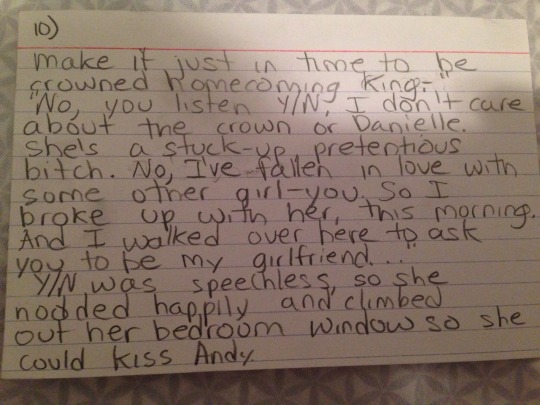 10)
make it just in time to be
crowned homecoming king-"
"No, you listen Y/N, I don't care
about the crown or Danielle.
She's a stuck-up pretentious
bitch. No, I've fallen in love with
some other girl-you. So I
broke up with her, this morning.
And I walked over here to ask
you to be my girlfriend..."
Y/N was speechless, so she
nodded happily and climbed
out her bedroom window so she
could kiss Andy.